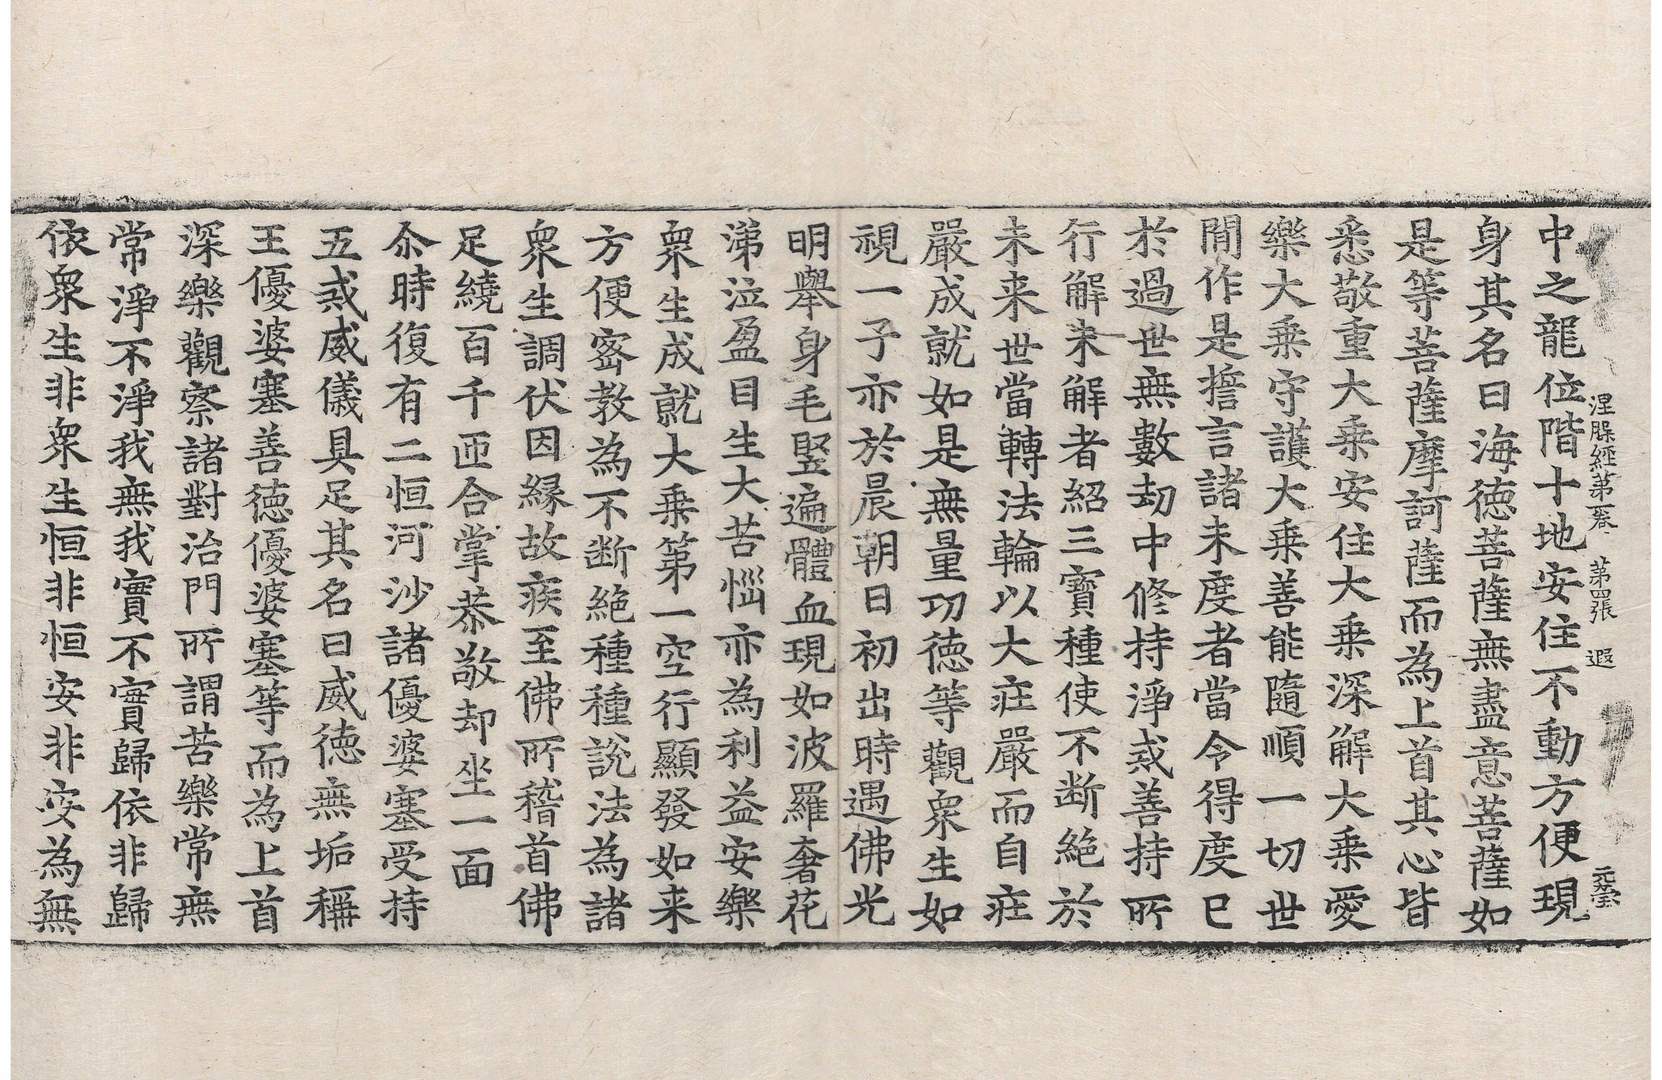 涅槃經第一卷 第四張 遐 元瑩
中之龍位階十地安住不動方便現
身其名曰海德菩薩無盡意菩薩如
是等菩薩摩訶薩而為上首其心皆
悉敬重大乘安住大乘深解大乘愛
樂大乘守護大乘善能隨順一切世
間作是誓言諸未度者當令得度已
於過世無數劫中修持淨戒善持所
行解未解者紹三寶種使不断絕於
未来世當轉法輪以大莊嚴而自莊
嚴成就如是無量功德等觀衆生如
視一子亦於晨朝日初出時遇佛光
明舉身毛竪遍體血現如波羅奢花
涕泣盈目生大苦惱亦為利益安樂
衆生成就大乘第一空行顯發如来
方便密教為不断絕種種說法為諸
衆生調伏因緣故疾至佛所稽首佛
足繞百千匝合掌恭敬却坐一面
尒時復有二恒河沙諸優婆塞受持
五戒威儀具足其名曰威德無垢稱
王優婆塞善德優婆塞等而為上首
深樂觀察諸對治門所謂苦樂常無
常淨不淨我無我實不實歸依非歸
依衆生非衆生恒非恒安非安為無